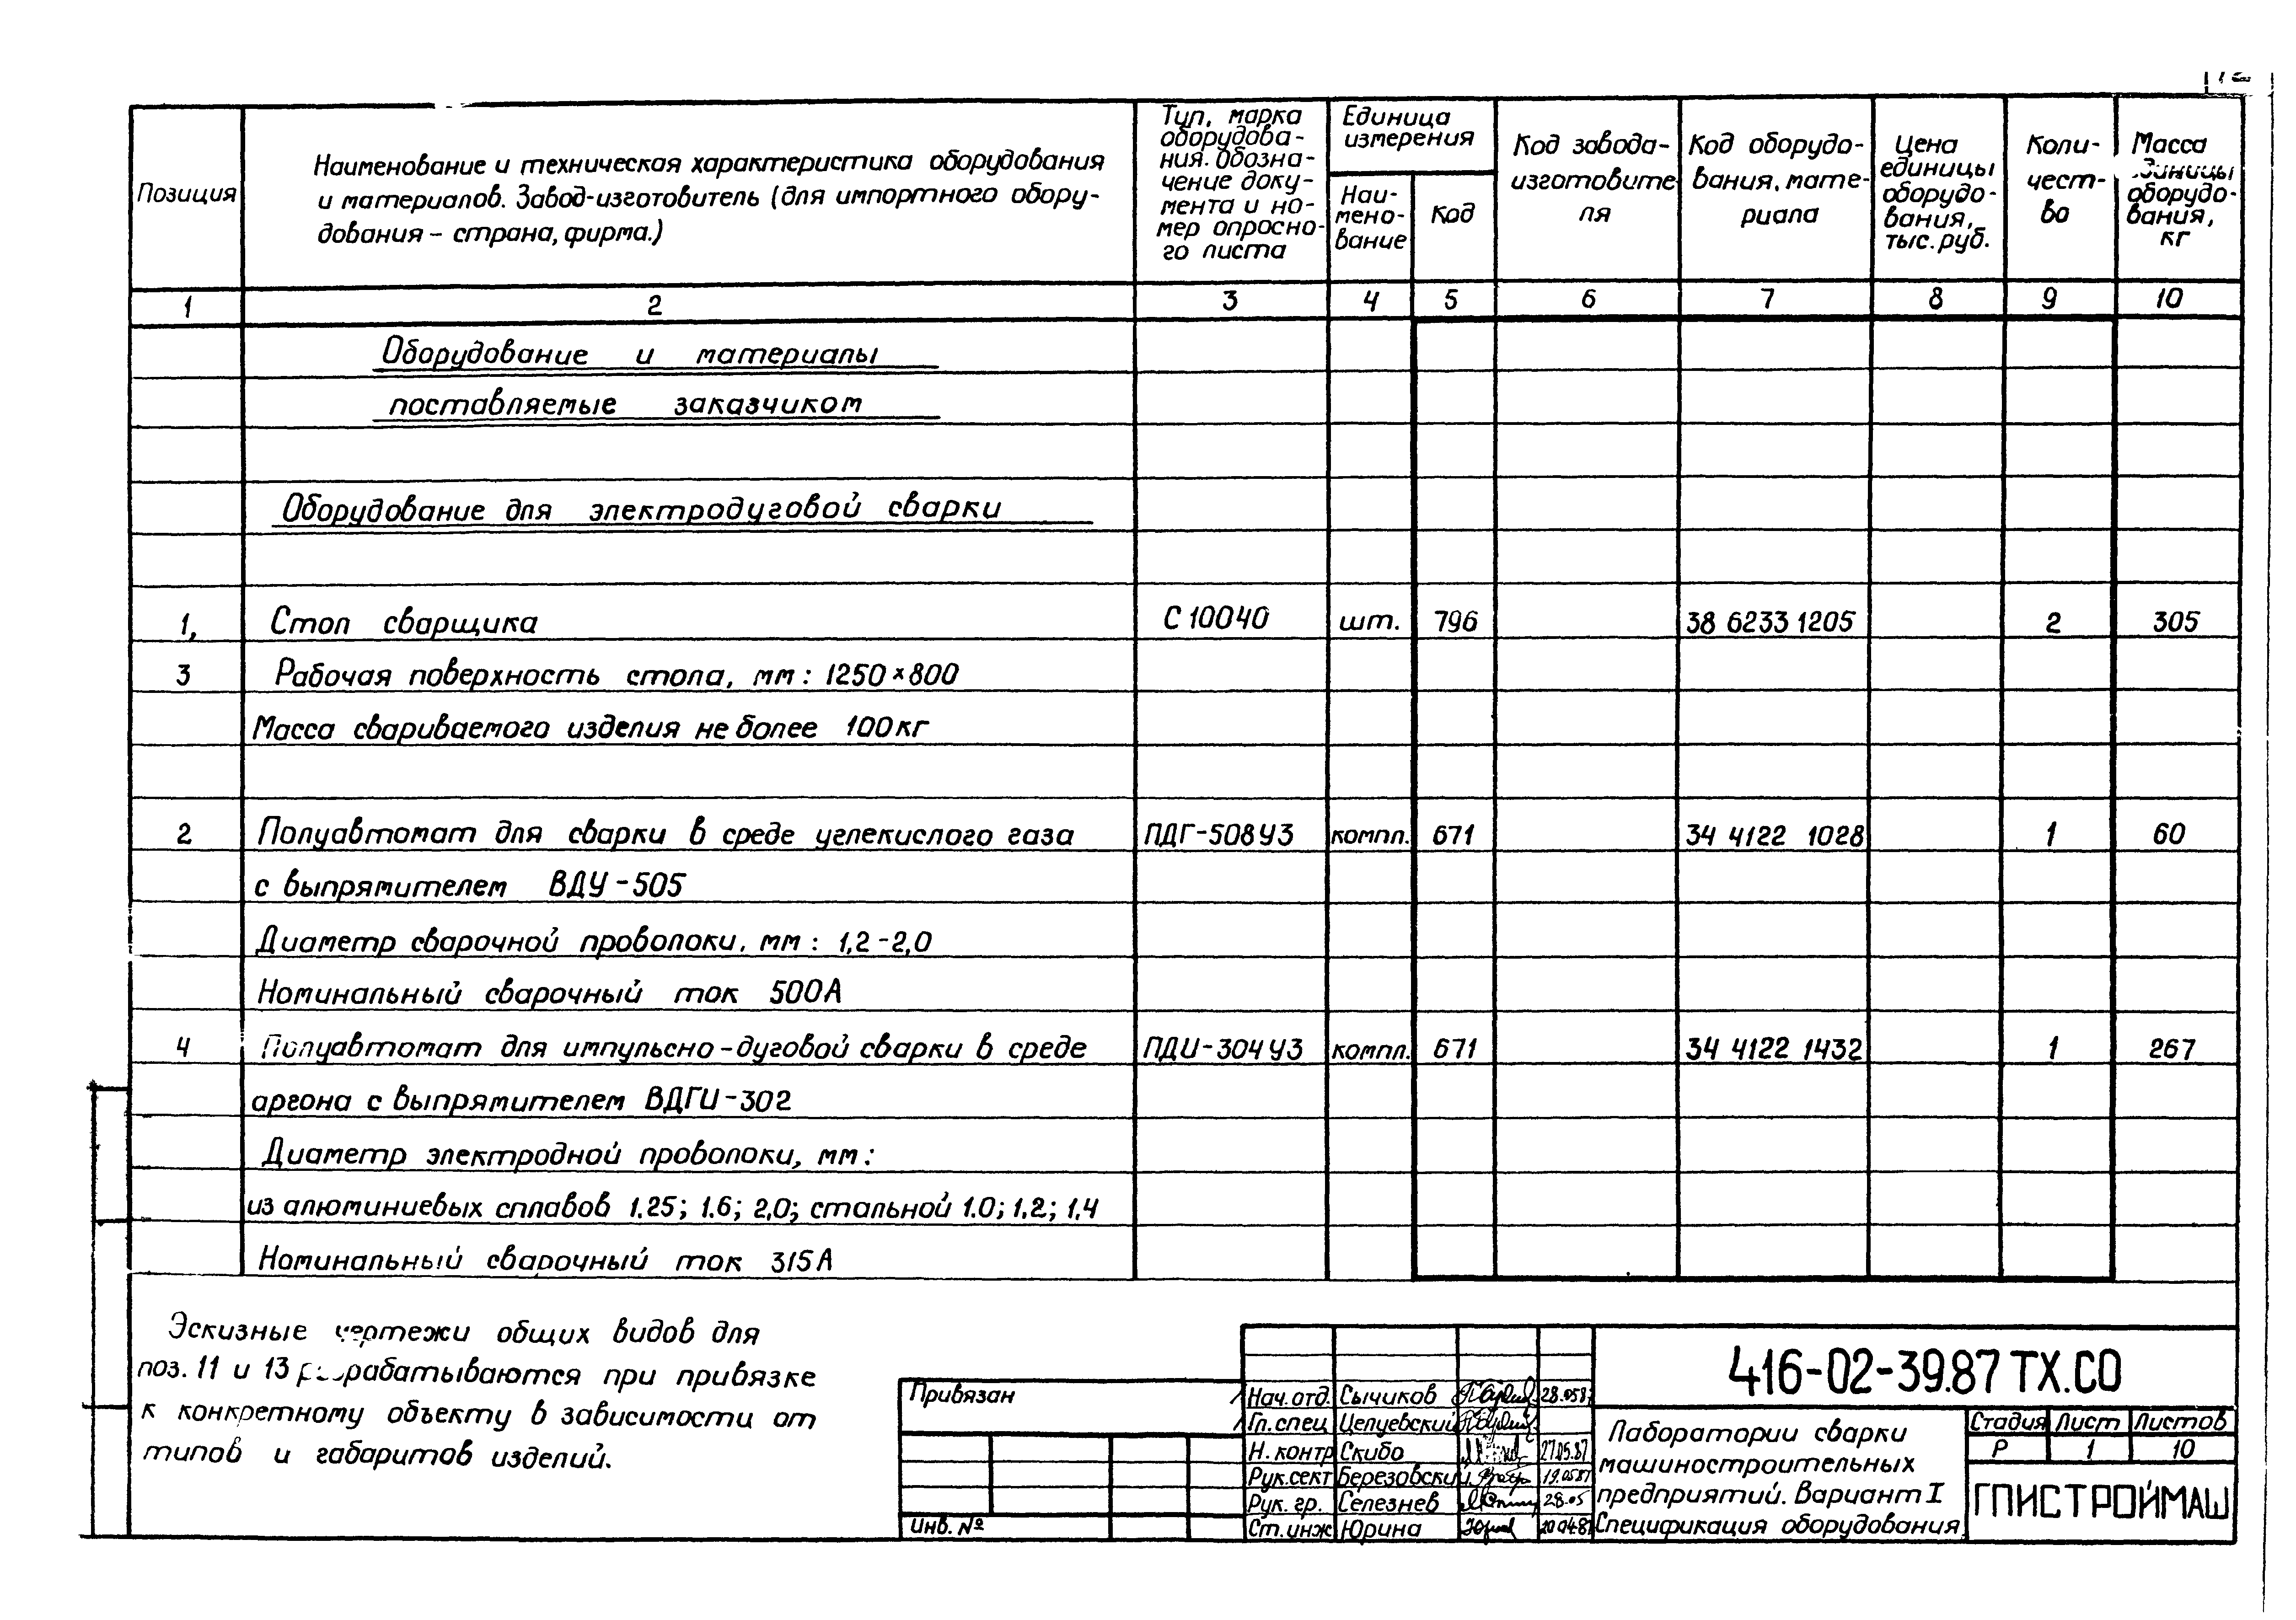 Позиция
Наименование и техническая характеристика оборудования
и материалов. Завод-изготовитель (для импортного обору-
дования - страна, фирма.)
Тип, марка
оборудова-
ния. Обозна-
чение доку-
мента и но-
мер опросно-
го листа
Единица
измерения
Наи-
мено-
вание
Код
Код завода-
изготовите
ля
Код оборудо-
вания, мате-
риала
Цена
единицы
оборудо-
вания,
тыс. руб.
Коли-
чест-
во
Масса
единицы
оборудо-
вания,
кг
1 2 3 4 5 6 7 8 9 10
Оборудование и материалы
поставляемые заказчиком
Оборудование для электродуговой сварки
1, Стол сварщика С 10040 шт. 796 38 6233 1205 2 305
3 Рабочая поверхность стола, мм: 1250×800
Масса свариваемого изделия не более 100кг
2 Полуавтомат для сварки в среде углекислого газа ПДГ-508У3 компл. 671 34 4122 1028 1 60
с выпрямителем ВДУ-505
Диаметр сварочной проволоки, мм: 1,2-2,0
Номинальный сварочный ток 500А
4 Полуавтомат для импульсно-дуговой сварки в среде ПДИ-304У3 компл. 671 34 4122 1432 1 267
аргона с выпрямителем ВДГИ-302
Диаметр электродной проволоки, мм:
из алюминиевых сплавов 1.25; 1.6; 2,0; стальной 1.0; 1,2; 1,4
Номинальный сварочный ток 315А
Эскизные чертежи общих видов для
поз. 11 и 13 разрабатываются при привязке
к конкретному объекту в зависимости от
типов и габаритов изделий.
Привязан
Инв. №
Нач. отд. Сычиков 28.0587
Гл. спец Целуевский
Н. контр Скибо 27.05.87
Рук. сект Березовский 19.0587
Рук. гр. Селезнев 28.05
Ст. инж Юрина 20.0487
416-02-39.87 ТХ.СО
Лаборатории сварки
машиностроительных
предприятий. Вариант I
Спецификация оборудования
Стадия Лист Листов
Р 1 10
ГПИСТРОЙМАШ